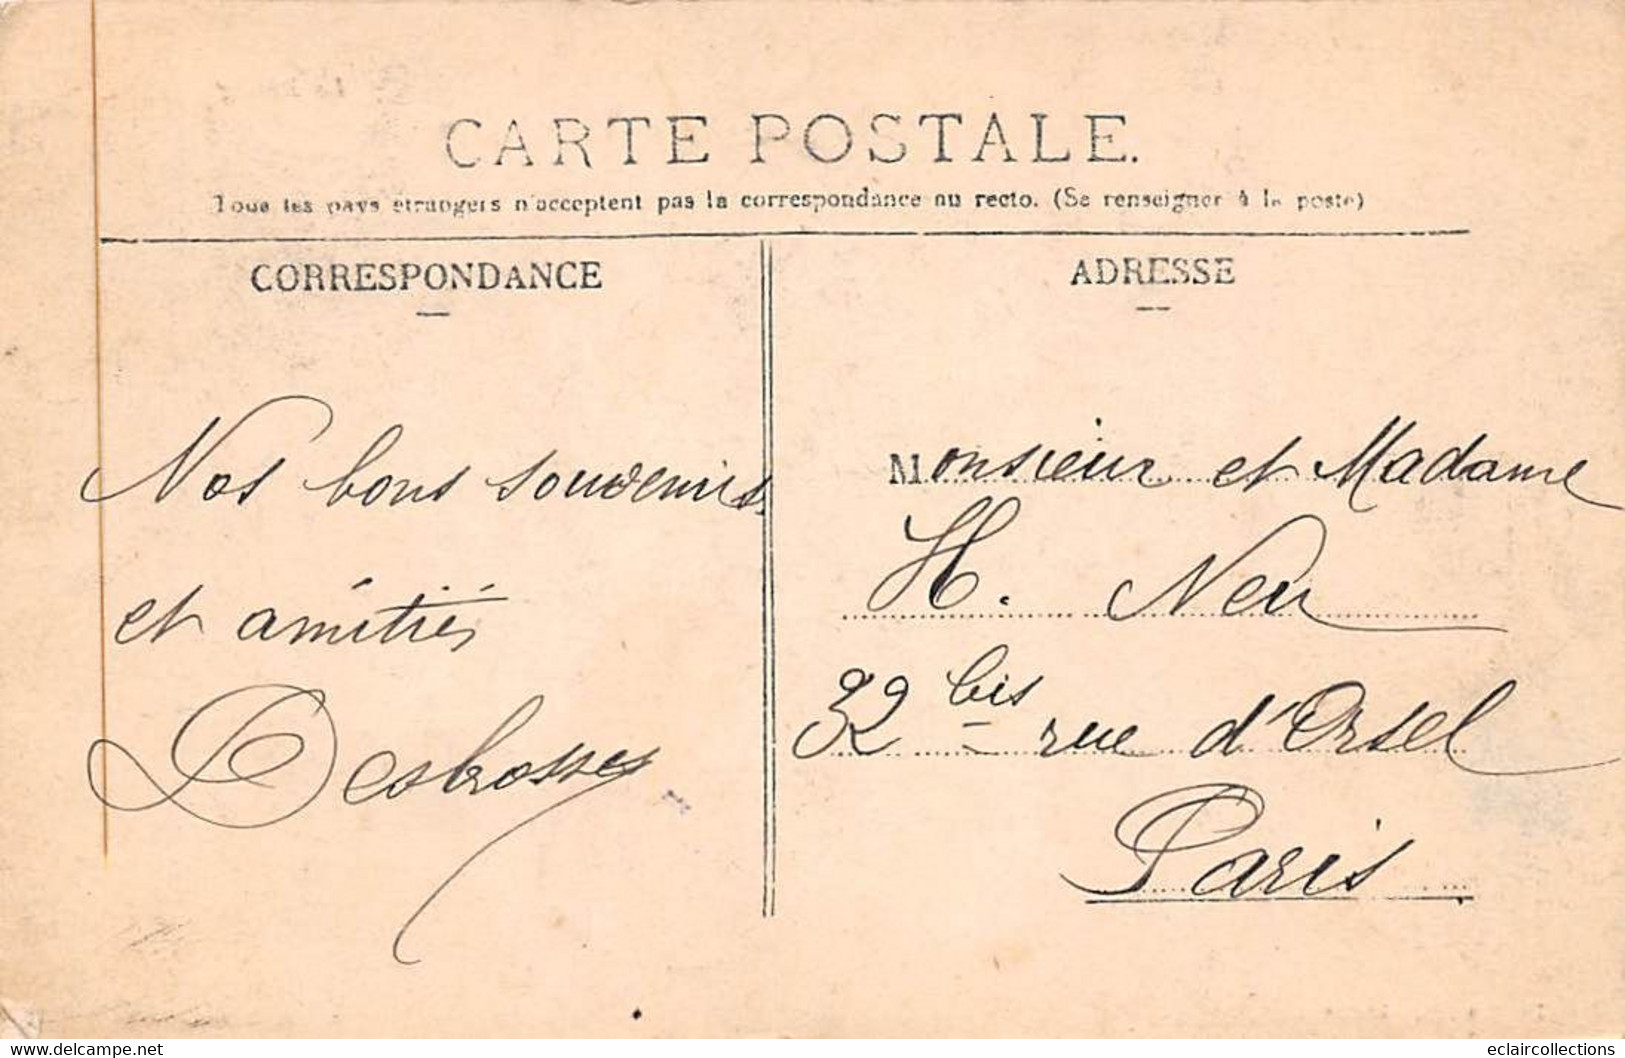 CARTE POSTALE.
Tous les pays étrangers n'acceptent pas la correspondance au recto. (Se renseigner à la poste)
CORRESPONDANCE
Nos bons souvenirs
et amitiés
Desbrosses
ADRESSE
Monsieur et Madame
H. Neu
32 bis rue d'Orsel
Paris
www.delcampe.net
eclaircollections